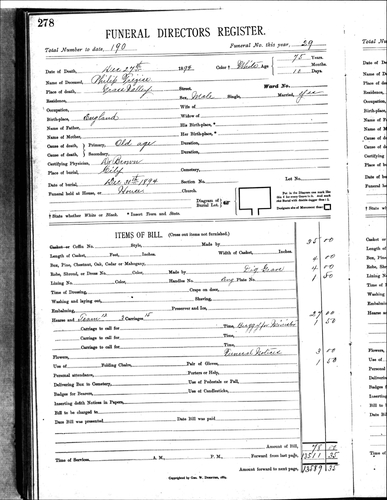 278
FUNERAL DIRECTORS REGISTER.
Total Number to date, 190 Funeral No. this year, 29
Date of Death, Dec 27th 1894 Color † White Age 75 Years.
Months.
Name of Deceased, Philip 10 Days.
Place of death, Grass Valley Street. Ward No.
Residence, Sex, Male Single, Married, yes
Occupation, Wife of
Birth-place, England Widow of
Name of Father, His Birth-place,*
Name of Mother, Her Birth-place,*
Cause of death, Primary, Old age Duration,
Cause of death, Secondary, Duration,
Certifying Physician, Dr Brown
Place of burial, City Cemetery,
Date of burial, Dec 30th 1894 Section No. Lot No.
Funeral held at House, or House Church. Diagram of Burial Lot,
† State whether White or Black. * Insert Town and State.
ITEMS OF BILL. (Cross out items not furnished.)
Casket or Coffin No. Style, Made by 35 00
Length of Casket, Feet, Inches. Width of Casket, Inches.
Box, Pine, Chestnut, Oak, Cedar or Mahogany, 4 00
Robe, Shroud, or Dress No. Color, Made by Dig Grave 4 00
Lining No. Color, Handles No. Plate No. 1 50
Time of Dressing, Crape on door,
Washing and laying out, Shaving,
Embalming, Preserver and Ice,
Hearse and Team 12 3 Carriages 15 27 00
Carriage to call for Time, Buggy for Minister 1 50
Carriage to call for Time,
Carriage to call for Time,
Flowers, Funeral Notices 3 00
Use of Folding Chairs, Pair of Gloves, 1 50
Personal attendance, Porters or Help,
Delivering Box to Cemetery, Use of Pedestals or Pall,
Badges for Bearers, Use of Candlesticks,
Inserting death Notices in Papers,
Bill to be charged to
Date Bill was presented Date Bill was paid
Amount of Bill,
Time of Services, A. M., P. M. Forward from last page, 13511 35
Amount forward to next page, 13589 35